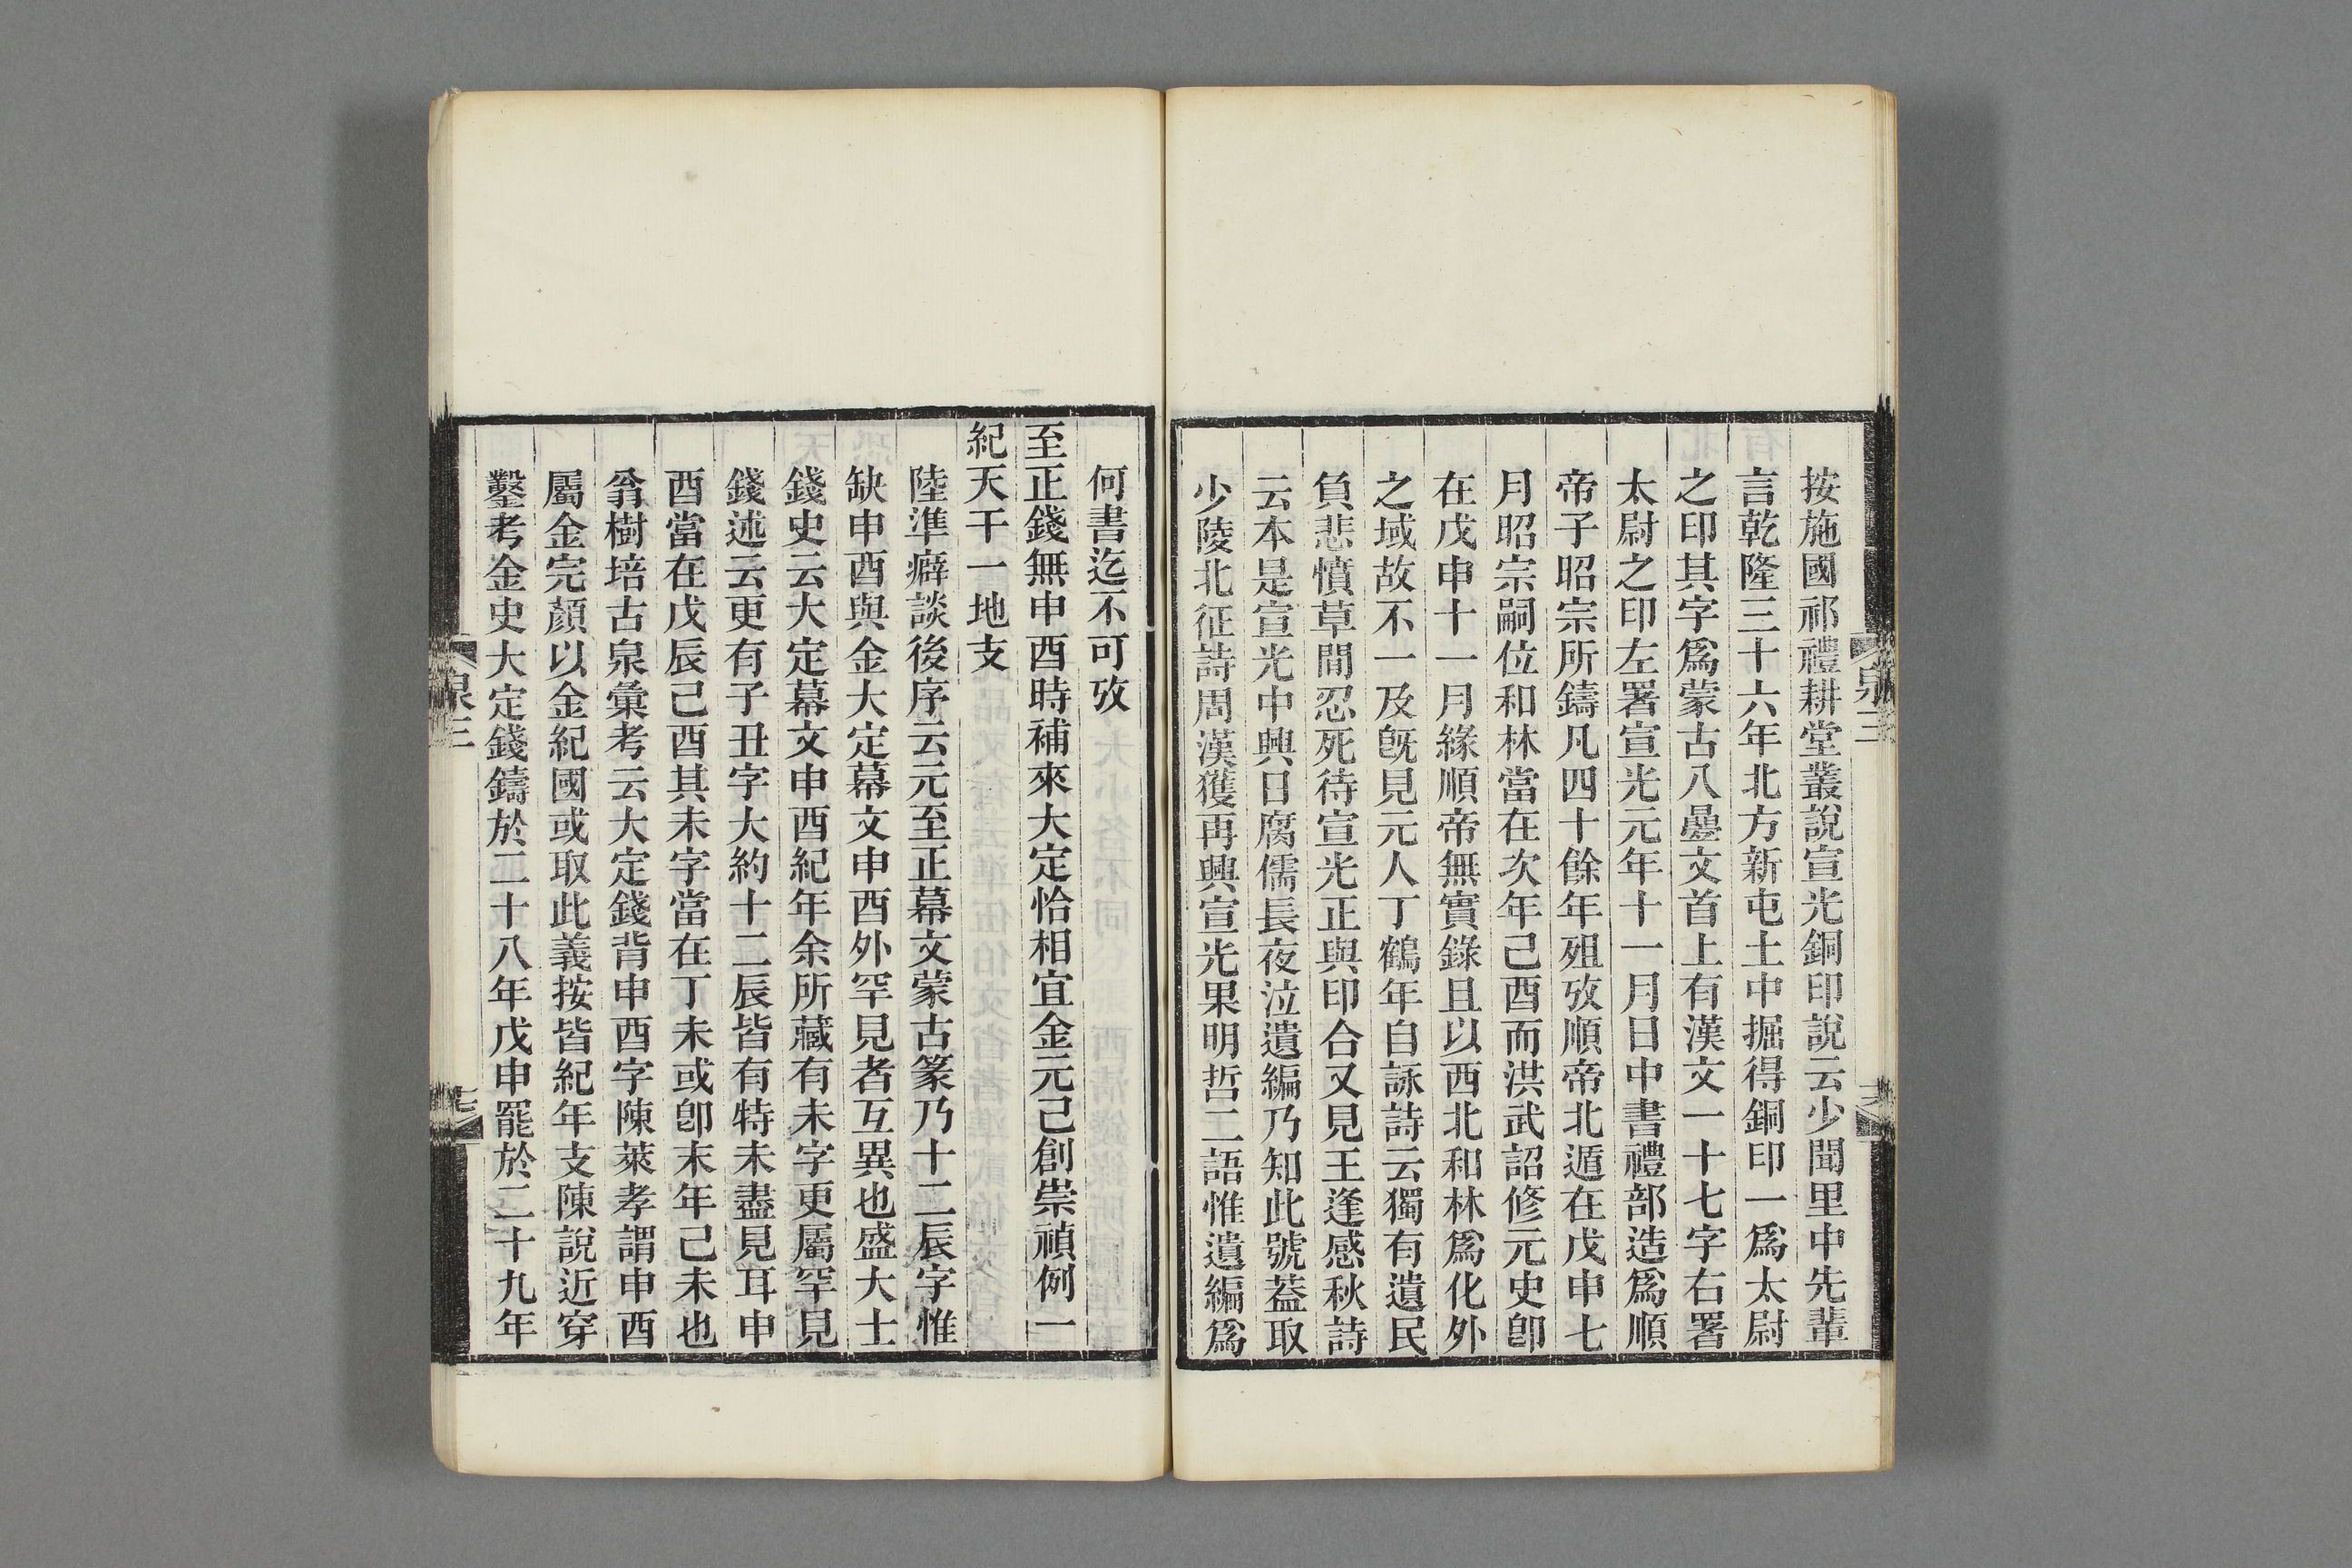 按施國祁禮耕堂叢說宣光銅印說云少聞里中先輩
言乾隆三十六年北方新屯土中掘得銅印一爲太尉
之印其字爲蒙古八疊文首上有漢文一十七字右署
太尉之印左署宣光元年十一月日中書禮部造爲順
帝子昭宗所鑄凡四十餘年殂攷順帝北遁在戊申七
月昭宗嗣位和林當在次年己酉而洪武詔修元史卽
在戊申十一月緣順帝無實錄且以西北和林爲化外
之域故不一及旣見元人丁鶴年自詠詩云獨有遺民
負悲憤草閒忍死待宣光正與印合又見王逢感秋詩
云本是宣光中興日腐儒長夜泣遺編乃知此號蓋取
少陵北征詩周漢獲再興宣光果明哲二語惟遺編爲
泉三
何書迄不可攷
至正錢無申酉時補來大定恰相宜金元己創崇禎例一
紀天干一地支
陸準癖談後序云元至正幕文蒙古篆乃十二辰字惟
缺申酉與金大定幕文申酉外罕見者互異也盛大士
錢史云大定幕文申酉紀年余所藏有未字更屬罕見
錢述云更有子丑字大約十二辰皆有特未盡見耳申
酉當在戊辰己酉其未字當在丁未或卽末年己未也
翁樹培古泉彙考云大定錢背申酉字陳萊孝謂申酉
屬金完顏以金紀國或取此義按皆紀年支陳說近穿
鑿考金史大定錢鑄於二十八年戊申罷於二十九年
泉三